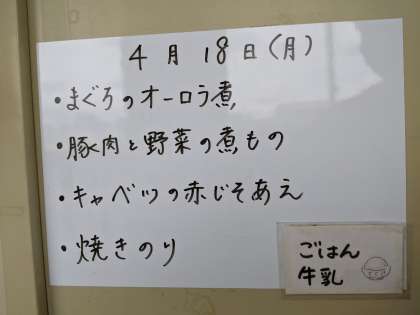 4月18日(月)
・まぐろのオーロラ煮
・豚肉と野菜の煮もの
・キャベツの赤じそあえ
・焼きのり
ごはん
牛乳